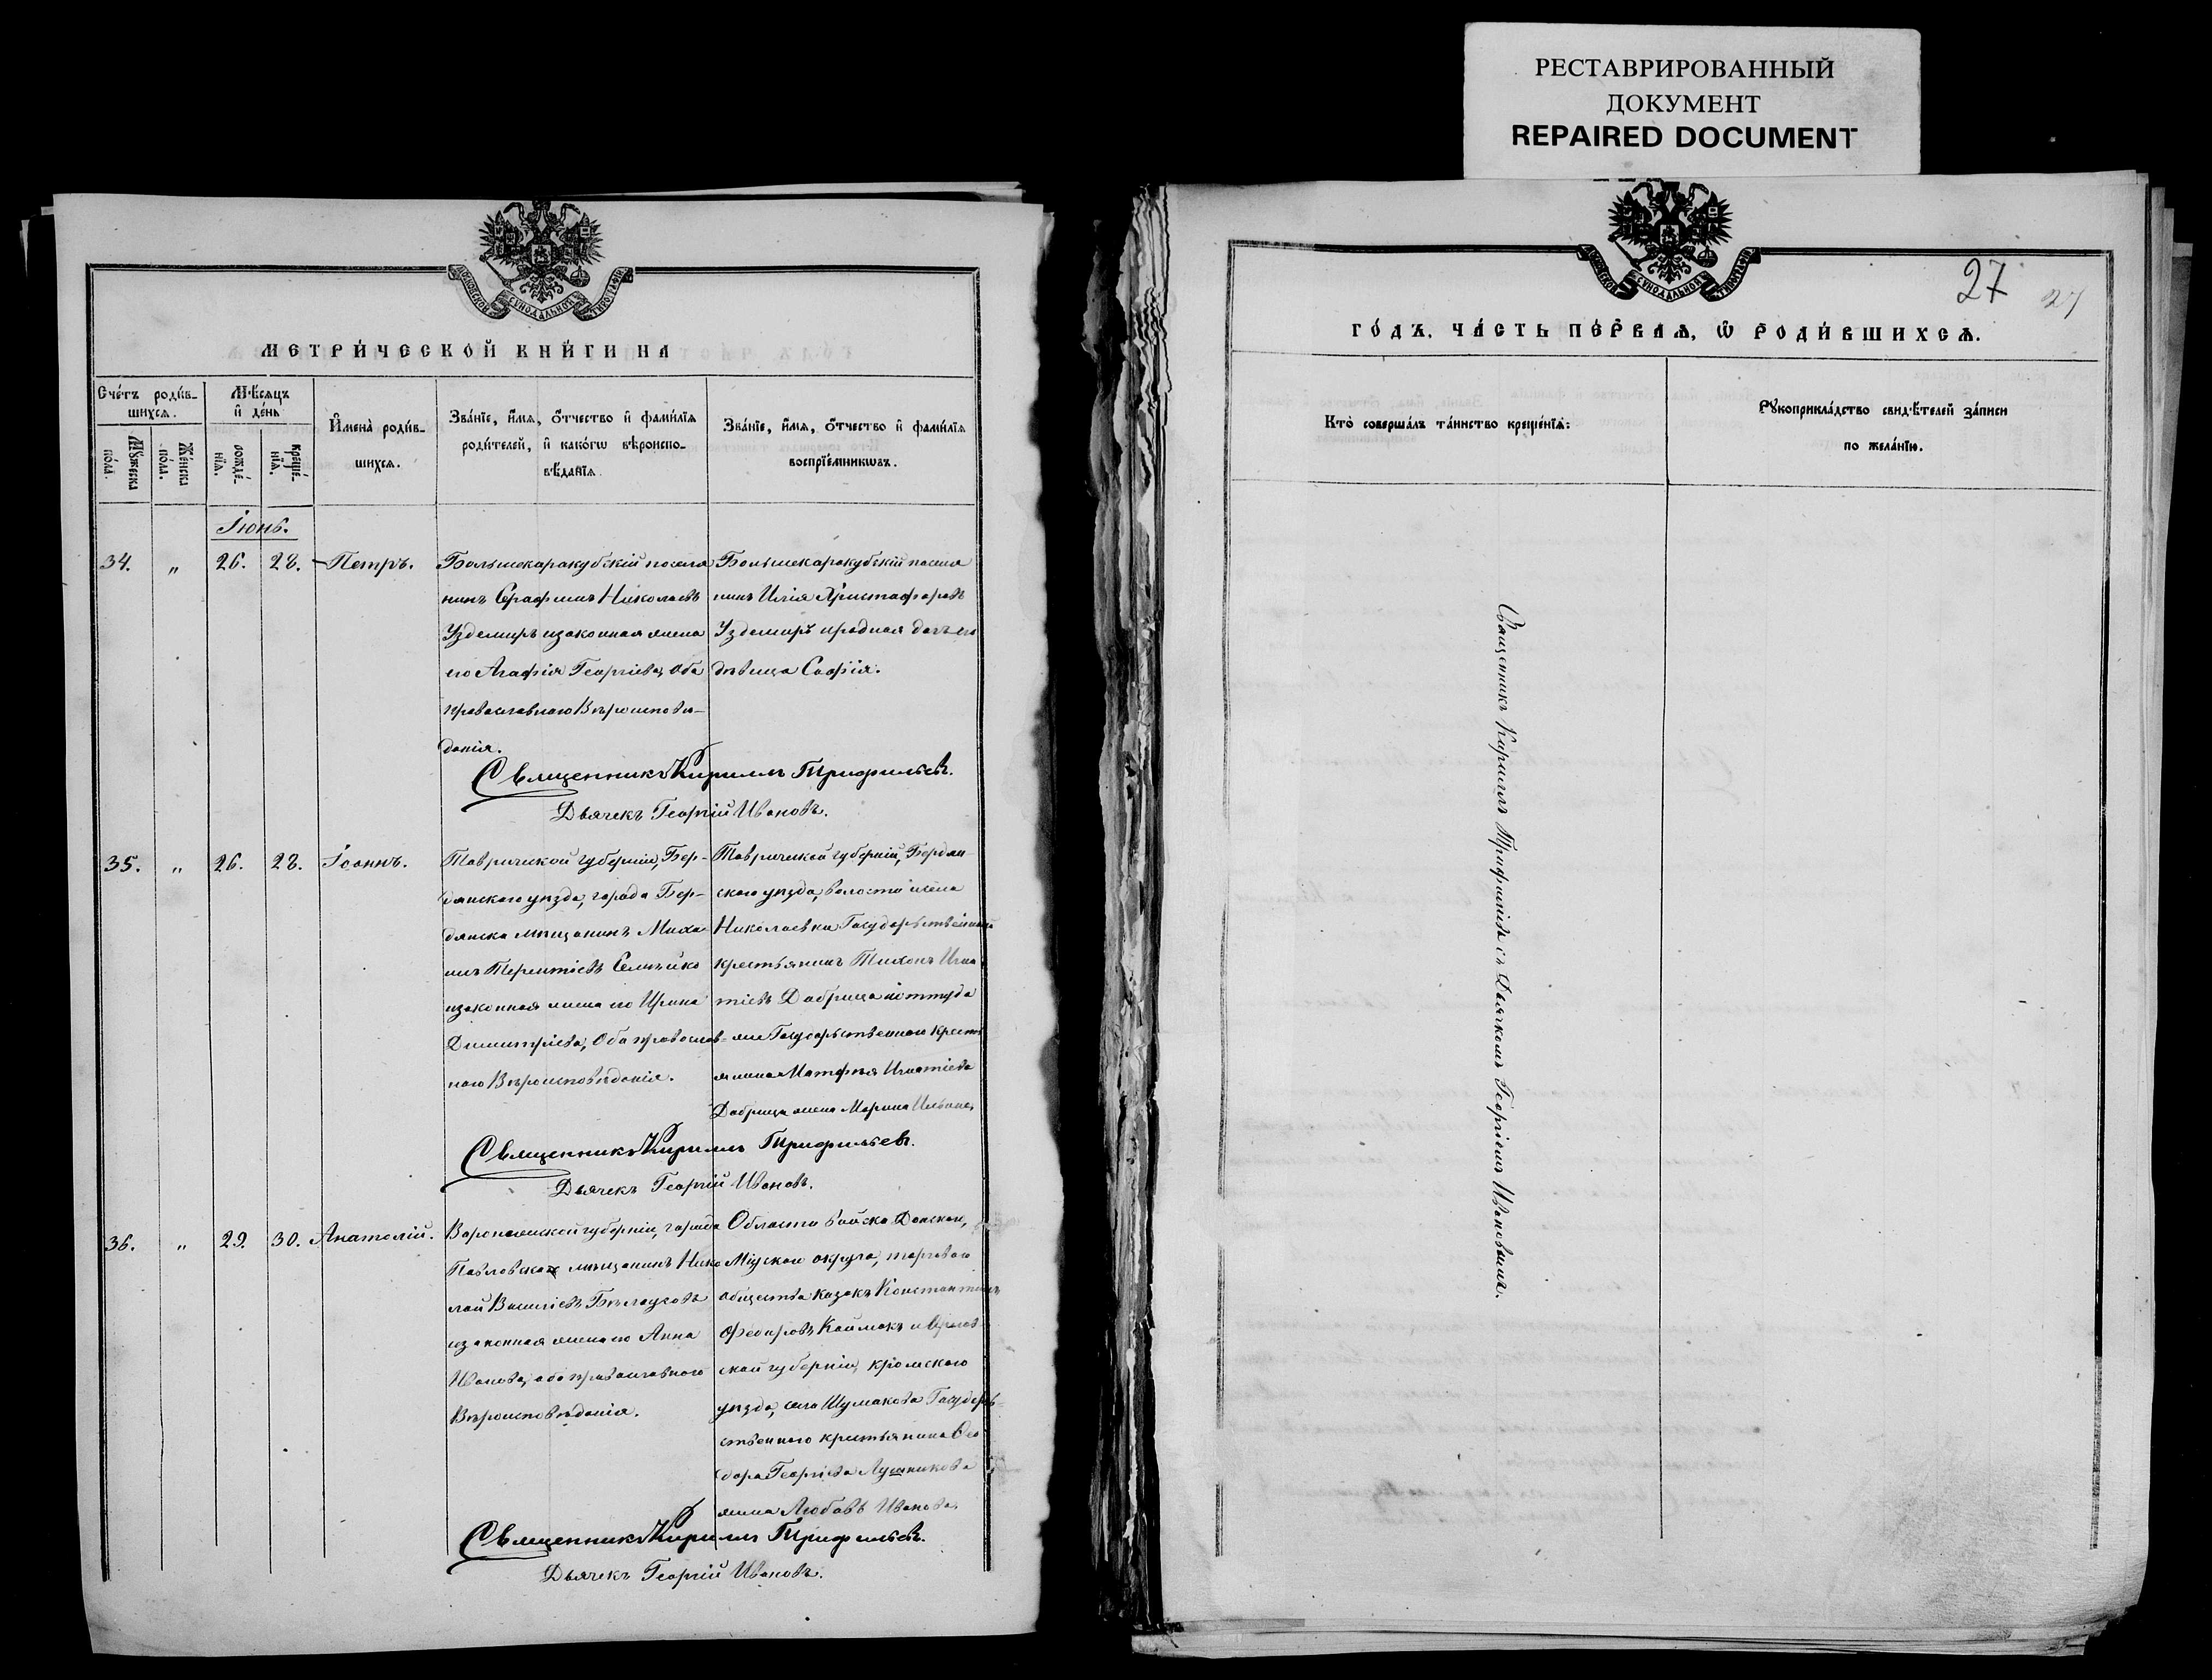 РЕСТАВРИРОВАННЫЙ
ДОКУМЕНТ
REPAIRED DOCUMENT
МОСКОВСКОЙ СѴНОДАЛЬНОЙ ТИПОГРАФІИ
МЕТРИ́ЧЕСКОЙ КНИ́ГИ НА
Сче́тъ роди́в-
шихсѧ.
Мꙋ́жеска
по́ла.
Же́нска
по́ла.
Мѣ́сѧцъ
и҆ де́нь
рожде́-
нїѧ.
креще́-
нїѧ.
И҆мена̀ роди́в-
шихсѧ.
Зва́нїе, и҆́мѧ, ѻ҆́тчество и҆ фами́лїѧ
роди́телей, и҆ како́гѡ вѣроиспо-
вѣ́данїѧ
Зва́нїе, и҆́мѧ, ѻ҆́тчество и҆ фами́лїѧ
воспрїе́мникѡвъ.
Іюнь.
34. „ 26. 28. Петръ.
Большекаракубскій поселя
нинъ Серафимъ Николаевъ
Уздемиръ изаконная жена
его Агафія Георгіева, Оба
православнаго Вѣроисповѣ-
данія.
Большекаракубскій поселя
нинъ Илія Христофоровъ
Уздемиръ иродная дочь его
дѣвица Софія.
Священникъ Кириллъ Трифильевъ.
Дьячекъ Георгій Ивановъ.
35. „ 26. 28. Іоаннъ.
Таврической губерніи, Бер-
дянскаго уѣзда, города Бер-
дянска мѣщанинъ Миха
илъ Терентіевъ Семѣйко
изаконная жена его Ирина
Димитріева, Оба православ-
наго Вѣроисповѣданія.
Таврической губерніи, Бердян-
скаго уѣзда, волости
Николаевки Государственный
крестьянинъ Тихонъ Игна
тіевъ Добрица иоттуда
же Государственнаго кресть
янина Матфѣя Игнатіева
Добрица жена Марина Ильина,
Священникъ Кириллъ Трифильевъ.
Дьячекъ Георгій Ивановъ.
36. „ 29. 30. Анатолій.
Воронежской губерніи, города
Павловска мѣщанинъ Нико
лай Василіевъ Бѣлаусовъ
изаконная жена его Анна
Иванова, оба православнаго
Вѣроисповѣданія.
Области войска Донскаго,
Міускаго округа, торговаго
общества казакъ Константинъ
Феодоровъ Каймакъ и Орлов-
ской губерніи, кромскаго
уѣзда, села Шумакова Государ-
ственнаго крестьянина Ѳео
дора Георгіева Лушникова
жена Любовь Иванова,
Священникъ Кириллъ Трифильевъ.
Дьячекъ Георгій Ивановъ.
МОСКОВСКОЙ СѴНОДАЛЬНОЙ ТИПОГРАФІИ
27 27
ГО́ДЪ, ЧА́СТЬ ПЕ́РВАѦ, Ѡ҆ РОДИ́ВШИХСѦ.
Кто̀ соверша́лъ та́инство креще́нїѧ:
Рꙋкоприкла́дство свидѣ́телей за́писи
по жела́нїю.
Священникъ Кириллъ Трифиліевъ съ Дьячкомъ Георгіемъ Ивановымъ.